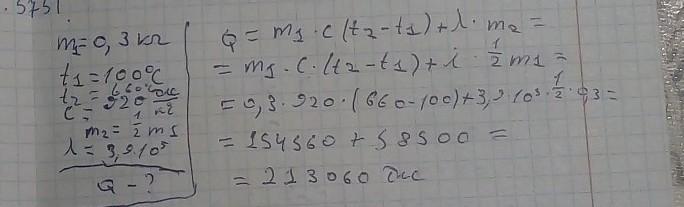 5751.
m1=0,3кг
t1=100°C
t2=660°C
c=920 Дж/кг
m2=1/2 m1
λ=3,9·10⁵
Q-?
Q=m1·c(t2-t1)+λ·m2=
=m1·c·(t2-t1)+λ·1/2 m1=
=0,3·920·(660-100)+3,9·10⁵·1/2·0,3=
=154560+58500=
=213060 Дж